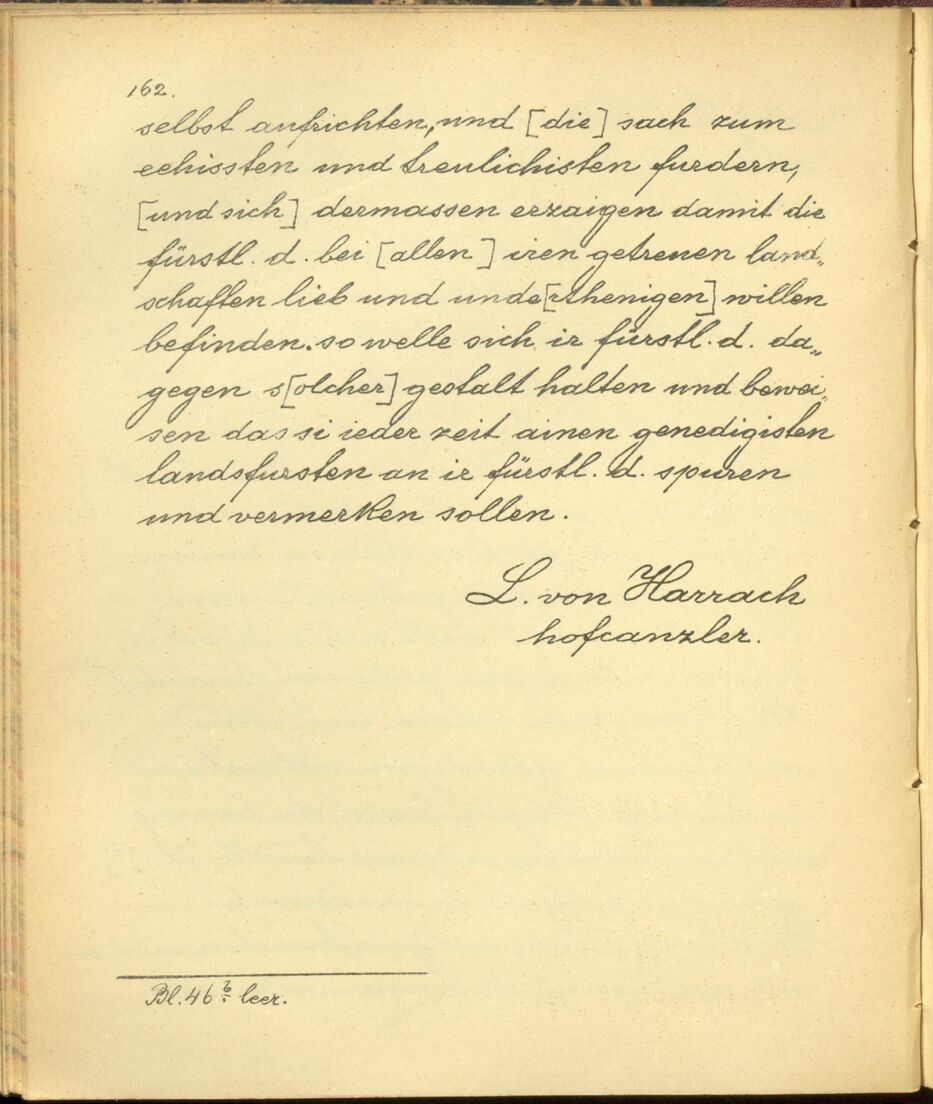 162.
selbst aufrichten, und [die] sach zum
eehissten und treulichisten furdern,
[und sich] dermassen erzaigen damit die
fürstl. d. bei [allen] iren getreuen land„
schaften lieb und unde[rthenigen] willen
befinden. so welle sich ir fürstl. d. da„
gegen s[olcher] gestalt halten und bewei„
sen das si ieder zeit ainen genedigisten
landsfursten an ir fürstl. d. spuren
und vermerken sollen.
L. von Harrach
hofcanzler.
Bl. 46 b leer.